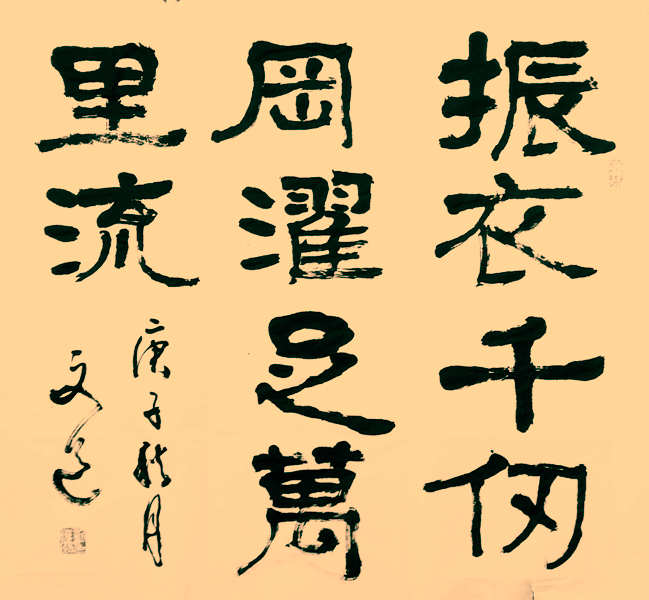 振衣千仞
岡濯足萬
里流
庚子秋月
文